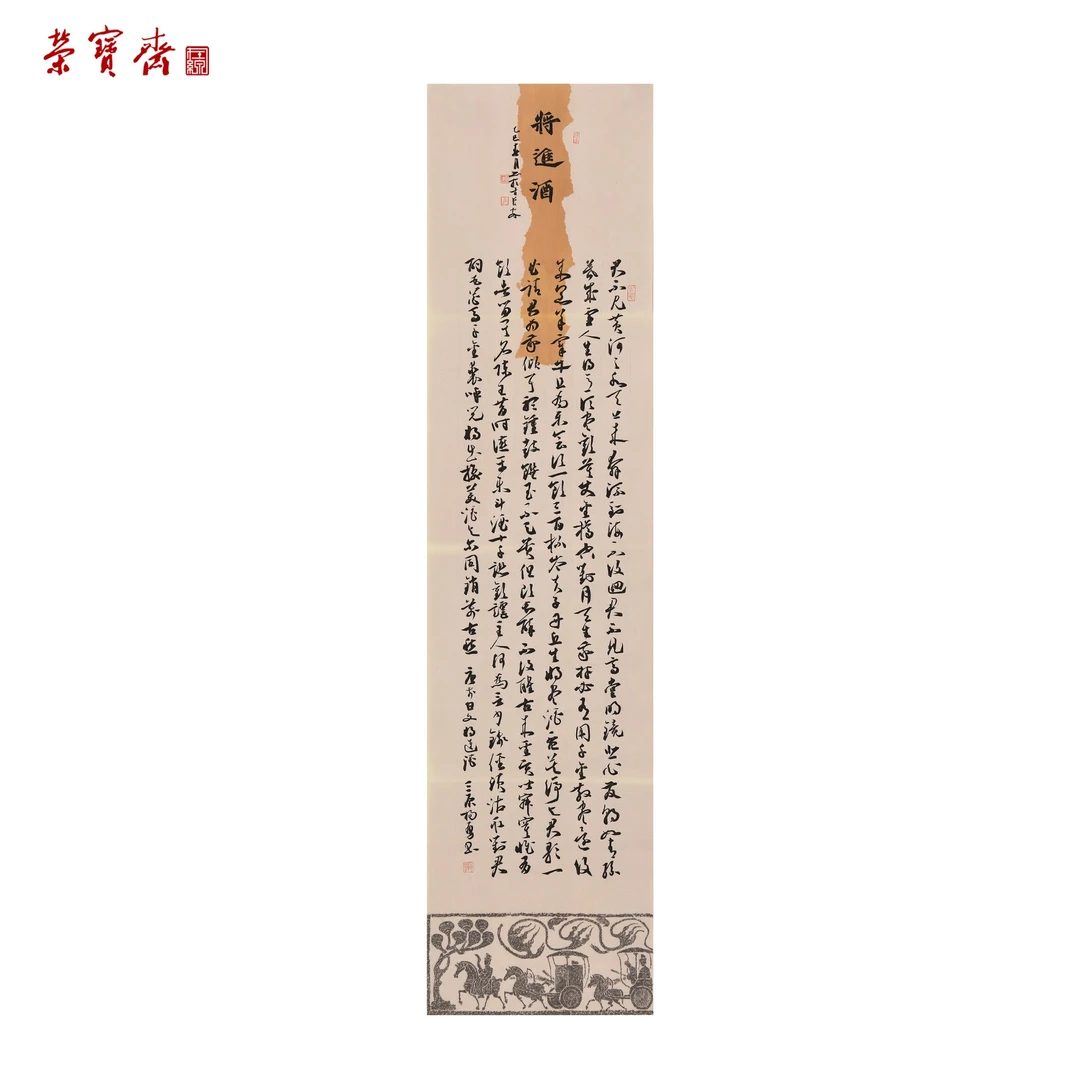 榮寶齋
將進酒
乙巳春月
君不見黃河之水天上來奔流到海不復迴君不見高堂明鏡悲白髮朝如青絲
暮成雪人生得意須盡歡莫使金樽空對月天生我材必有用千金散盡還復
來烹羊宰牛且為樂會須一飲三百杯岑夫子丹丘生將進酒杯莫停與君歌一
曲請君為我傾耳聽鐘鼓饌玉不足貴但願長醉不復醒古來聖賢皆寂寞惟有
飲者留其名陳王昔時宴平樂斗酒十千恣歡謔主人何為言少錢徑須沽取對君
酌五花馬千金裘呼兒將出換美酒與爾同銷萬古愁 唐李白文將進酒 三原